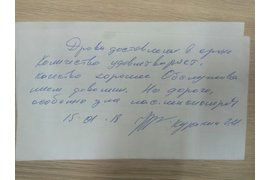 Дрова доставлены в срок
Количество удовлетворяет,
качество хорошее Обслуживан
ием довольны. Но дорого,
особенно для пас. пенсионеров
15-01-18 Кудрякин